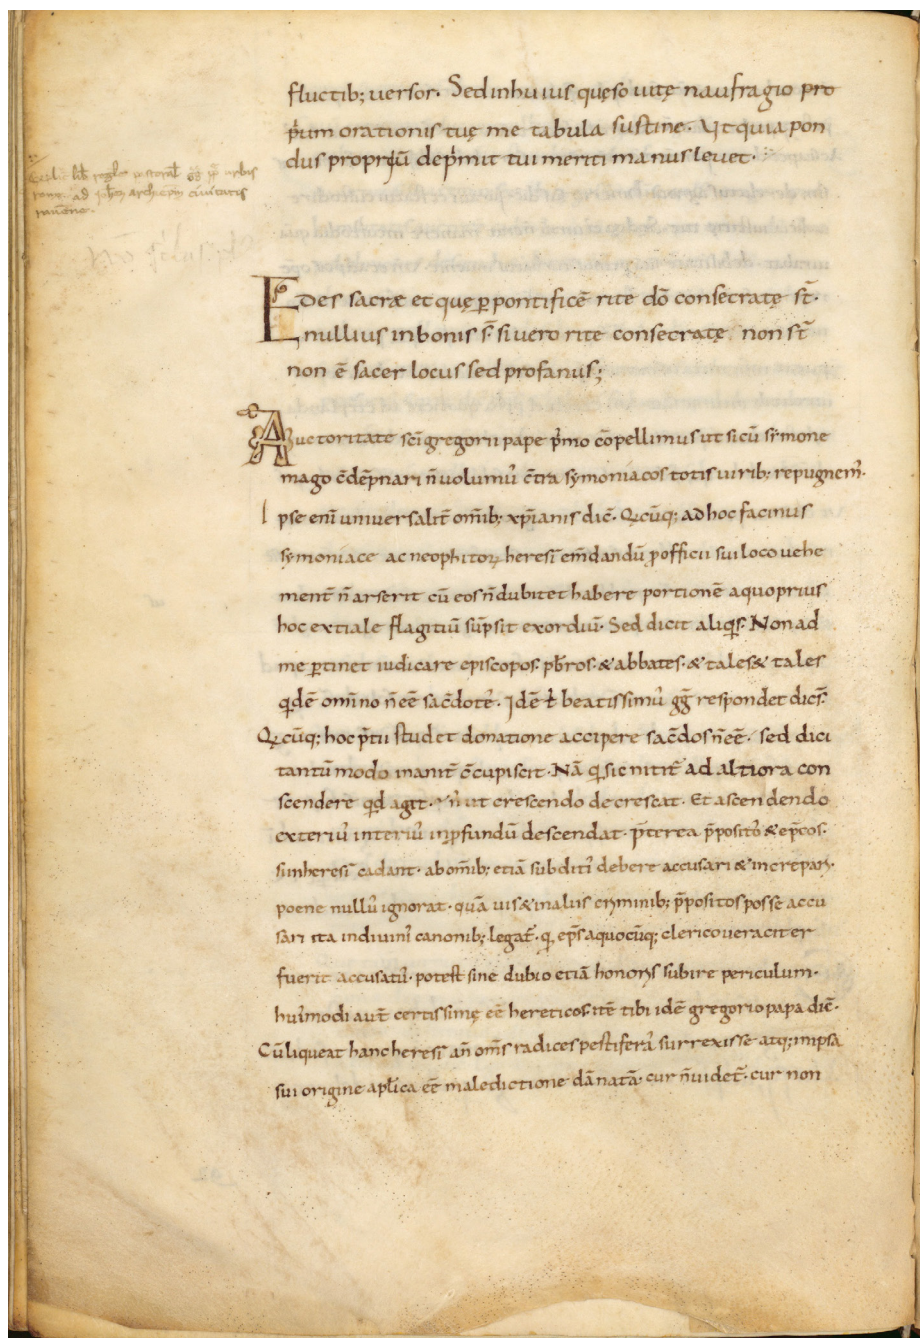 fluctib; uersor. Sed in huius quęso uitę naufragio pro
p̄um orationis tuę me tabula sustine. Vt quia pon
dus propriū dep̄mit tui meriti manus leuet.
lib̄ regl̄e pastoral̄ gḡ pp̄ urbis
rome. ad ioh̄em archiep̄m ciuitatis
rauēne.
EDes sacræ et quę ꝑ pontificē rite dō consecratę st̄.
nullius in bonis s̄. si uero rite consecratę non st̄
non ē sacer locus sed profanus;
Auctoritate sc̄i gregorii pape p̄mo cōpellimus ut si cū symone
mago c̄dēpnari n̄ uolum᷒ c̄tra symoniacos totis uirib; repugnem᷒.
Ipse eni᷒ uniuersalit̄ om̄ib; xp̄ianis dic̄. Qicūq; ad hoc facinus
symoniace ac neophitoꝝ heresī em̄dandū ꝓ officii sui loco uehe
ment̄ n̄ arserit cū eo se n̄ dubitet habere portionē a quo prius
hoc extiale flagitiū sūpsit exordiū. Sed dicit aliqs̄. Non ad
me ꝑtinet iudicare episcopos. pb̄ros. & abbates. & tales & tales
qdē omīno n̄ eē sac̄dote᷒. Idē t̄ beatissimu᷒ gḡ respondet dic̄s.
Qicūq; hoc p̄tii studet donatione accipere sac̄dos n̄ eē. sed dici
tantū modo inanit̄ c̄cupiscit. Nā qi sic nitit᷒ ad altiora con
scendere qd agit. n̄ ut crescendo decrescat. Et ascendendo
exteriu᷒ interiu᷒ in ꝓfundū descendat. p̄terea p̄posito᷒ & ep̄cos.
si in heresī cadant. ab om̄ib; etiā subditi᷒ debere accusari & increpari.
poene nullu᷒ ignorat. quāuis & in aliis criminib; p̄positos posse accu
sari ita in diuini᷒ canonib; legat᷒. qi ep̄s a quocūq; clerico ueraciter
fuerit accusatu᷒. potest sine dubio etiā honoris subire periculum.
hui᷒modi aut̄ certissimę eē hereticos. itē tibi idē gregorio papa dic̄.
Cū liqueat hanc heresī an̄ om̄s radices pestifera᷒ surrexisse atq; in ipsa
sui origine apl̄ica eē maledictione dānatā. cur n̄ uidet᷒. cur non